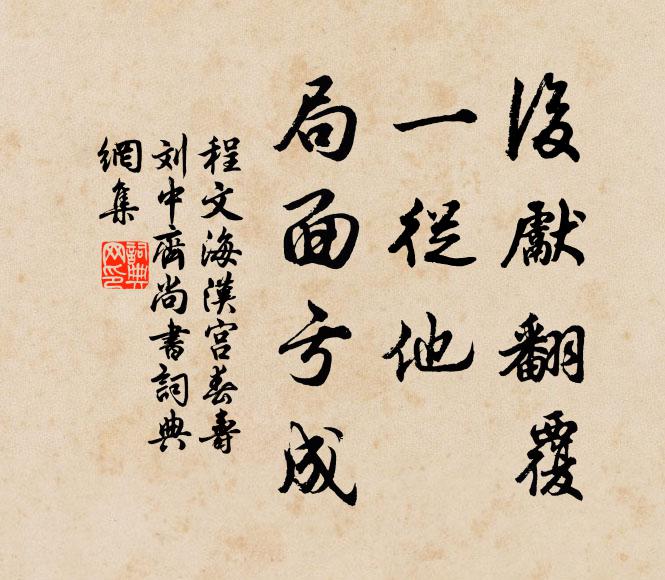 後獻翻覆
一從他
局面亏成
程文海漢宮春壽
刘中齋尚書詞典
網集
詞典
网印